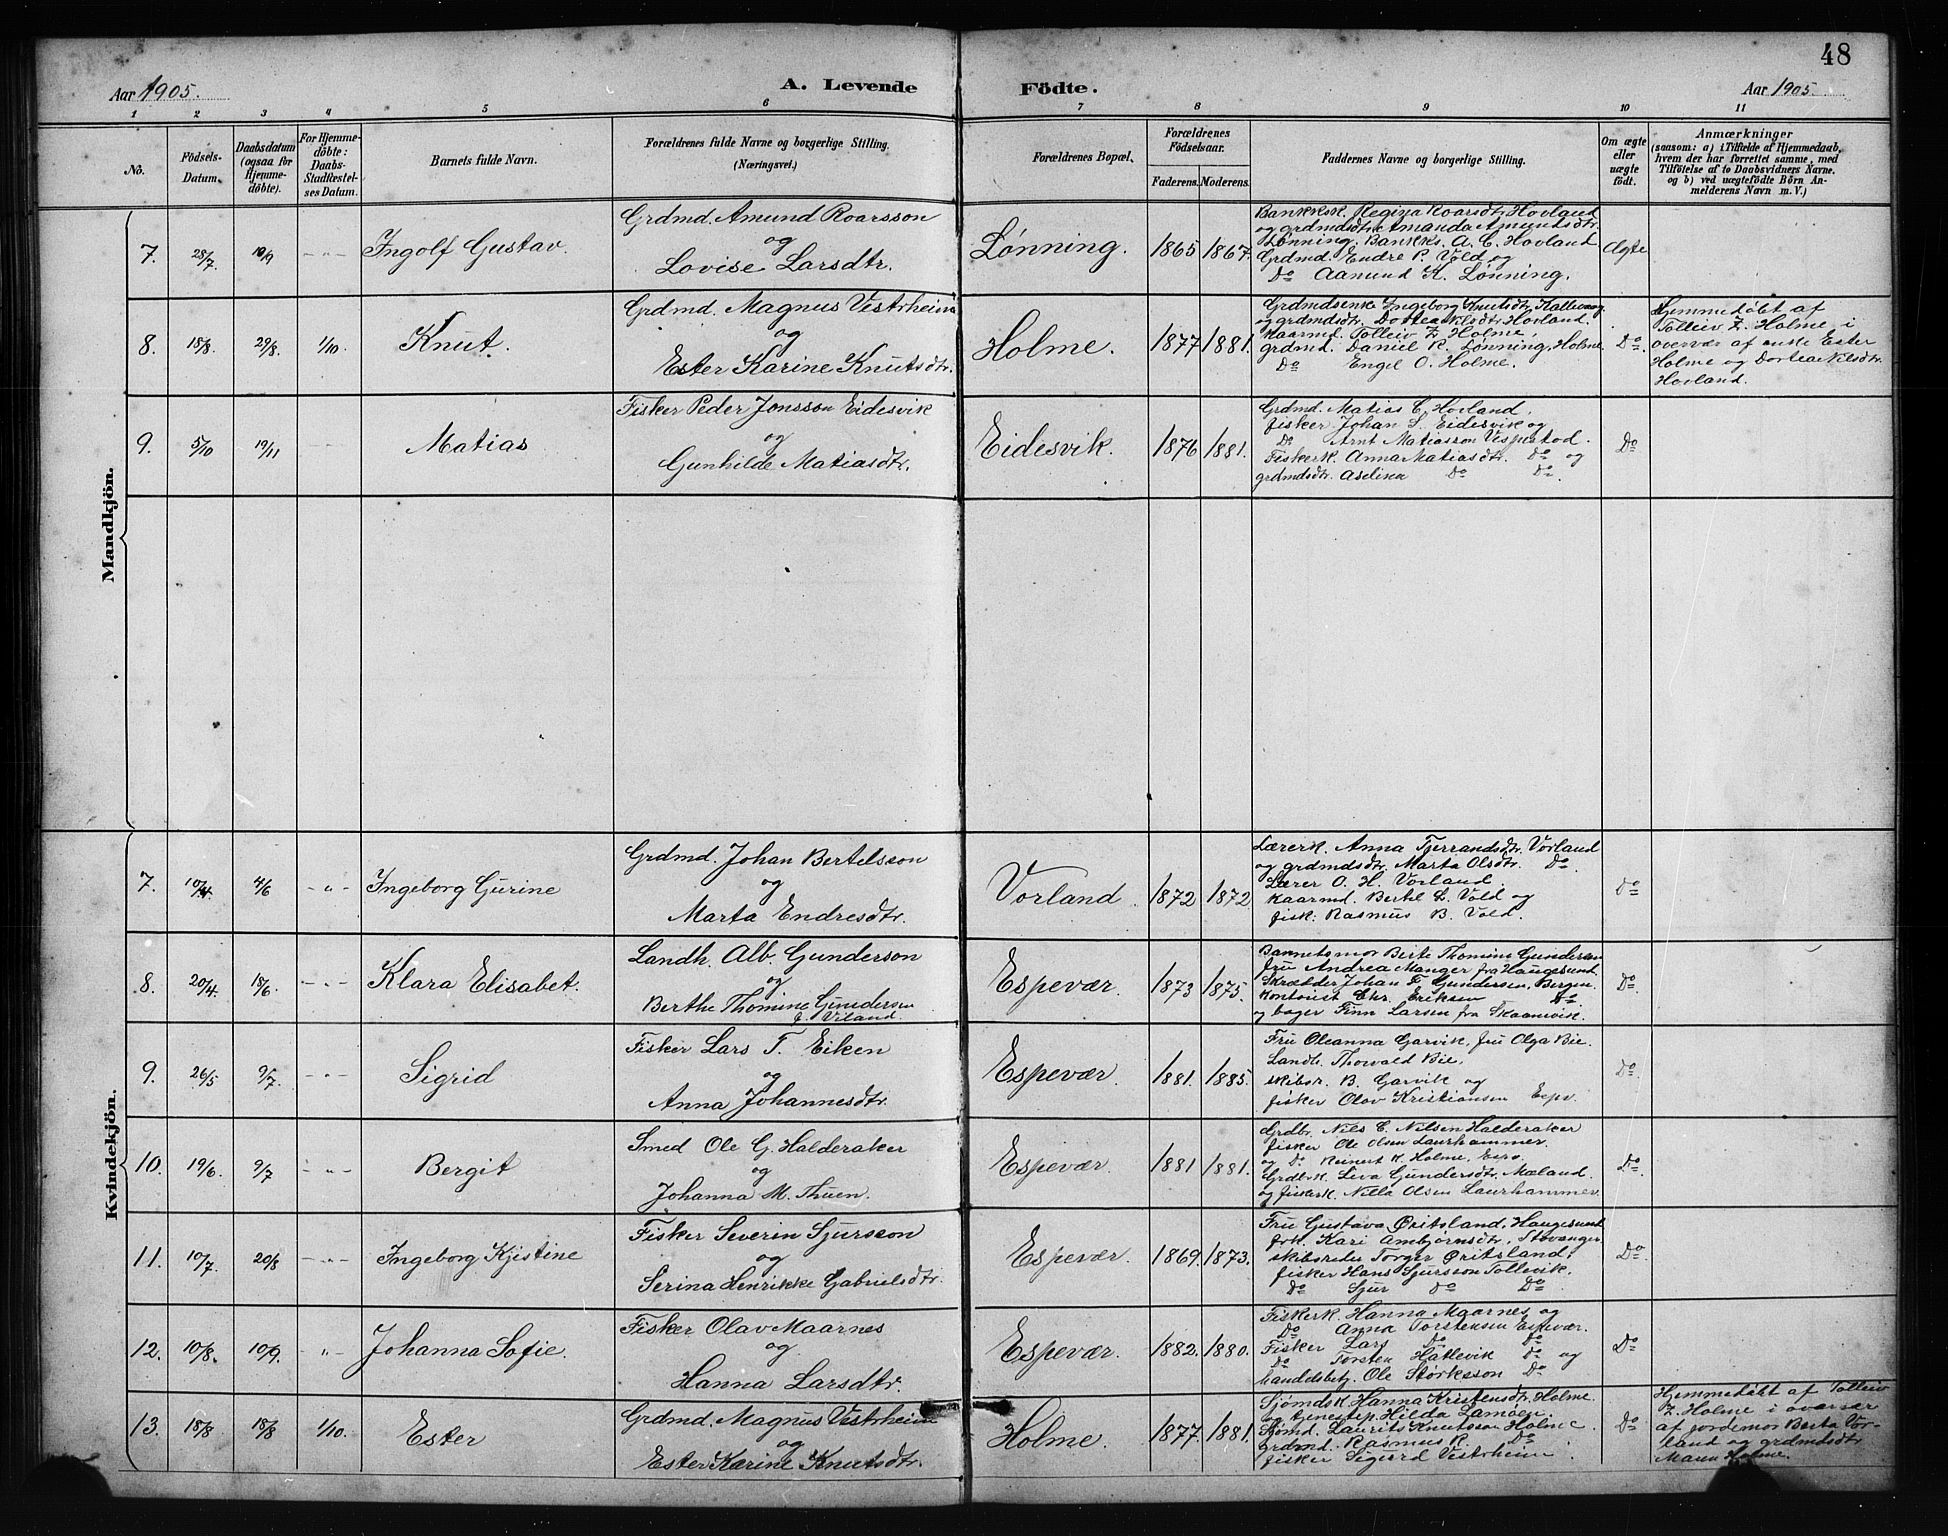 48
Aar 1905.
A. Levende Födte.
Aar 1905.
1 2 3 4 5 6 7 8 9 10 11
No.
Födsels-Datum.
Daabsdatum (ogsaa for Hjemmedöbte).
For Hjemmedöbte: Daabs-Stadfæstelses Datum.
Barnets fulde Navn.
Forældrenes fulde Navne og borgerlige Stilling.
(Næringsvei.)
Forældrenes Bopæl.
Forældrenes Födselsaar.
Faderens. Moderens.
Faddernes Navne og borgerlige Stilling.
Om ægte eller uægte födt.
Anmærkninger
(saasom: a) i Tilfælde af Hjemmedaab, hvem der har forrettet samme, med Tilföielse af to Daabsvidners Navne, og b) ved uægtefödte Börn Anmelderens Navn m. V.)
Mandkjön.
7. 28/7 10/9 -"- Ingolf Gustav.
Grdmd. Amund Roarsson
og
Lovise Larsdtr.
Lønning. 1865 1867.
Bankksk. Regina Roarsdtr. Hovland
og grdmdsdtr. Amanda Amundsdtr.
Lønning. Bankks. A. C. Hovland
Grdmd. Endre P. Vold og
Do Aamund K. Lønning.
Ægte
8. 18/8. 29/8. 1/10. Knut.
Grdmd. Magnus Vestrheim
og
Ester Karine Knutsdtr.
Holme. 1877 1881.
Grdmdsenke Ingeborg Knutsdtr.
og grdmdsdtr. Dortea Nlsdtr. Hovland.
Kaarmd. Tolleiv Z. Holme,
grdmd. Daniel R. Lønning, Holme.
Do Engel O. Holme.
Do.
Hjemmedøbt af
Tolleiv Z. Holme, i
overvær af enke Ester
Holme og Dortea Nlsdtr.
Hovland.
9. 5/10 19/11 Matias
Fisker Peder Jonsson Eidesvik
og
Gunhilde Matiasdtr.
Eidesvik. 1876 1881.
Grdmd. Matias C. Hovland,
fisker Johan S. Eidesvik og
Do Arnt Matiasson Vespestad.
Fiskerk. Anna Matiasdtr. Do og
grdmdsdtr. Aselina Do Do.
Do
Kvindekjön.
7. 10/4. 4/6 -"- Ingeborg Gurine
Grdmd. Johan Bertelsson
og
Marta Endresdtr.
Vorland. 1872 1872
Lærerk. Anna Tjerrandsdtr. Vorland
og grdmdsdtr. Marta Olsdtr. Do.
Lærer O. H. Vorland,
kaarmd. Bertil L. Vold og
fisk. Rasmus B. Vold.
Do
8. 20/4. 18/6. -"- Klara Elisabet.
Landh. Alb. Gunderson
og
Berthe Thomine Gundersen
f. Viland.
Espevær. 1873 1875.
Barnetsmor Birte Thomine Gundersen
fru Andrea Manger fra Haugesund.
Skrædder Johan F. Gundersen, Bergen.
Kontorist Chr. Eriksen Do.
og bager Finn Larsen fra Skaanevik.
Do.
9. 26/5 9/7. -"- Sigrid
Fisker Lars T. Eiken
og
Anna Johannesdtr.
Espevær. 1881. 1885.
Fru Oleanna Garvik, fru Olga Bie.
Landh. Thorvald Bie,
skibsr. B. Garvik og
fisker Olav Kristiansen Espv.
Do.
10. 19/6. 9/7 -"- Bergit
Smed Ole G. Halderaker
og
Johanna M. Thuen.
Espevær. 1881 1881.
Grdbr. Nils C. Nilsen Halderaker
fisker Ole Olsen Laurhammer.
og Do. Reinert K. Holme,
Grdbrk. Liva Gundersdtr. Mæland.
og fiskerk. Nilla Olsen Laurhammer.
Do.
11. 10/7. 20/8 -"- Ingeborg Kjistine
Fisker Severin Sjursson
og
Serina Henrikke Gabrielsdtr.
Espevær. 1869. 1873.
Fru Gustava Øritsland, Haugesund
frk. Kari Ambjørnsdtr. Stavanger,
skibsreder Torger Øritsland,
fisker Hans Sjursson Tollevik.
Do Sjur Do Do.
Do.
12. 10/8. 10/9. -"- Johanna Sofie.
Fisker Olav Maarnes
og
Hanna Larsdtr.
Espevær. 1882. 1880.
Fiskerk. Hanna Maarnes og
Do Anna Torstensen Espevær.
Fisker Lars Do Do
Do Torsten Hatlevik Do og
handelsbetj. Ole Størksson Do
Do
13. 18/8 18/8 1/10. Ester
Grdmd. Magnus Vestrheim
og
Ester Karine Knutsdtr.
Holme. 1877. 1881.
Sjømdsk. Hanna Kristensdtr. Holme
og tjenestep. Hilda Lamøen
Sjømd. Laurits Knutsson Holme
grdmd. Rasmus R. Do
fisker Sigurd Vestrheim.
Do
Hjemmedøbt af Tolleiv
Z. Holme i overvær
af jordemor Berta Vor-
land og grdmdsdtr.
Holme.